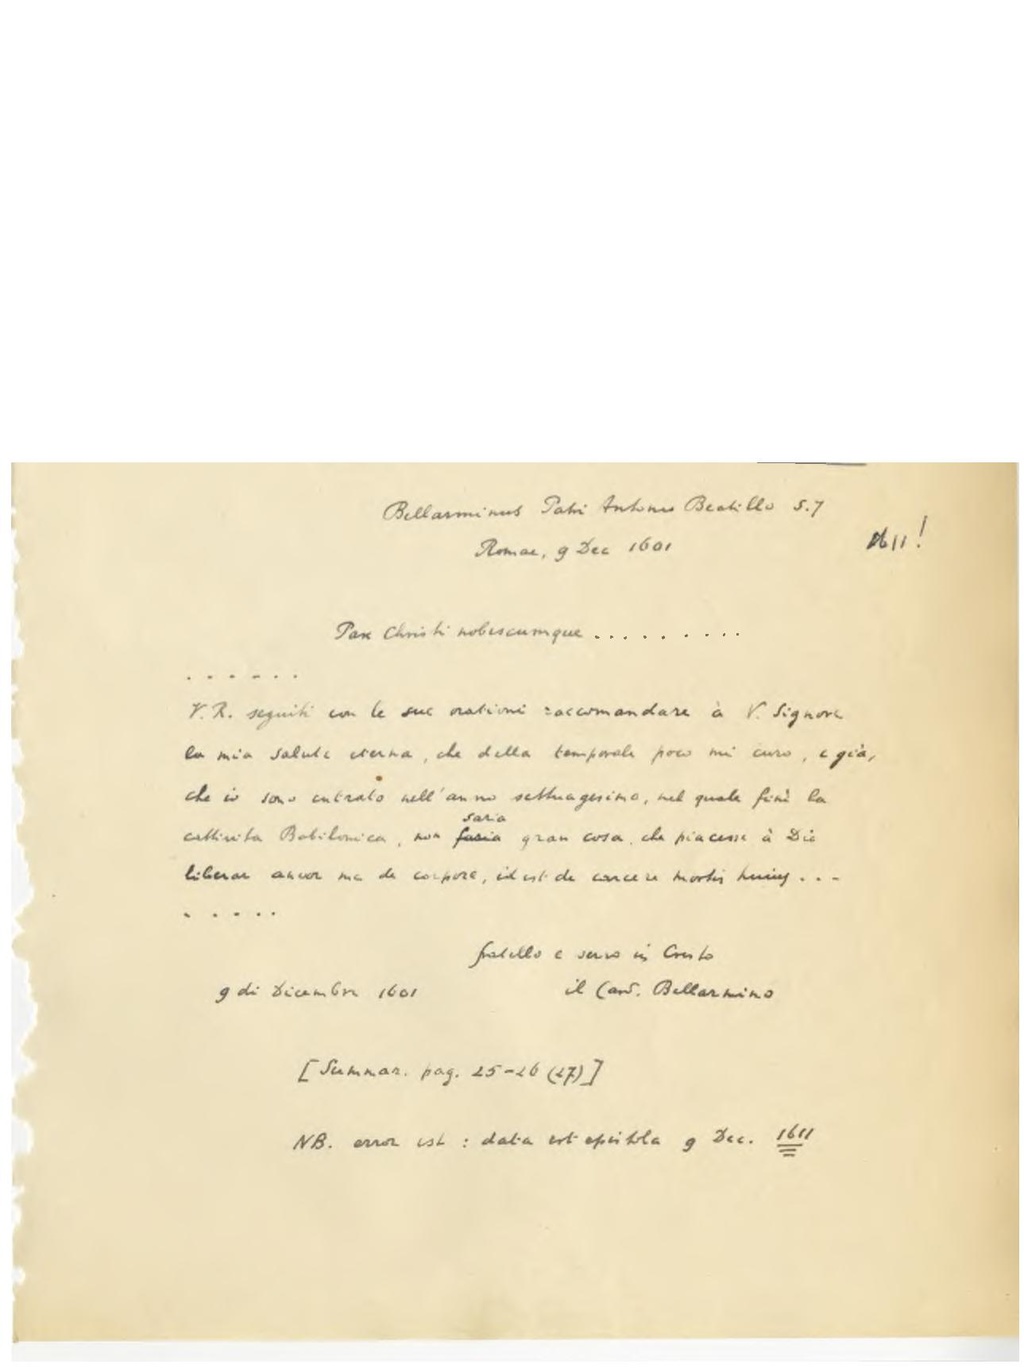 Bellarminus Patri Antonio Beatillo S.J
Romae, 9 Dec 1601
1611!
Pax Christi nobiscumque . . . . . . . . .
. . . . . .
V.R. seguiti con le sue orationi raccomandare à N. Signore
la mia salute eterna, che della temporale poco mi curo, e già,
che io sono entrato nell'anno settuagesimo, nel quale finì la
saria
cattivita Babilonica, non faria gran cosa, che piacesse à Dio
liberar ancor me de corpore, id est de carcere mortis huius . . .
. . . . .
fratello e servo in Cristo
9 di Dicembre 1601 il Card. Bellarmino
[Summar. pag. 25-26 (27)]
NB. error est : data est epistola 9 Dec. 1611